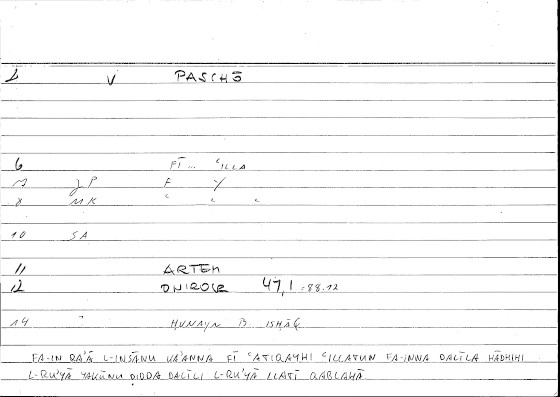 2 V PASCHŌ
6 FĪ ... ʿILLA
7 JP F Y
8 MK " " "
10 SA
11 ARTEM
12 ONIROCR 47,1 :88.12
14 " ḤUNAYN B. ISḤĀQ
FA-IN RA'Ā L-INSĀNU KA'ANNA FĪ ʿATIQAYHI ʿILLATUN FA-INNA DALĪLA HĀDHIHI
L-RU'YĀ YAKŪNU ḌIDDA DALĪLI L-RU'YĀ LLATĪ QABLAHĀ